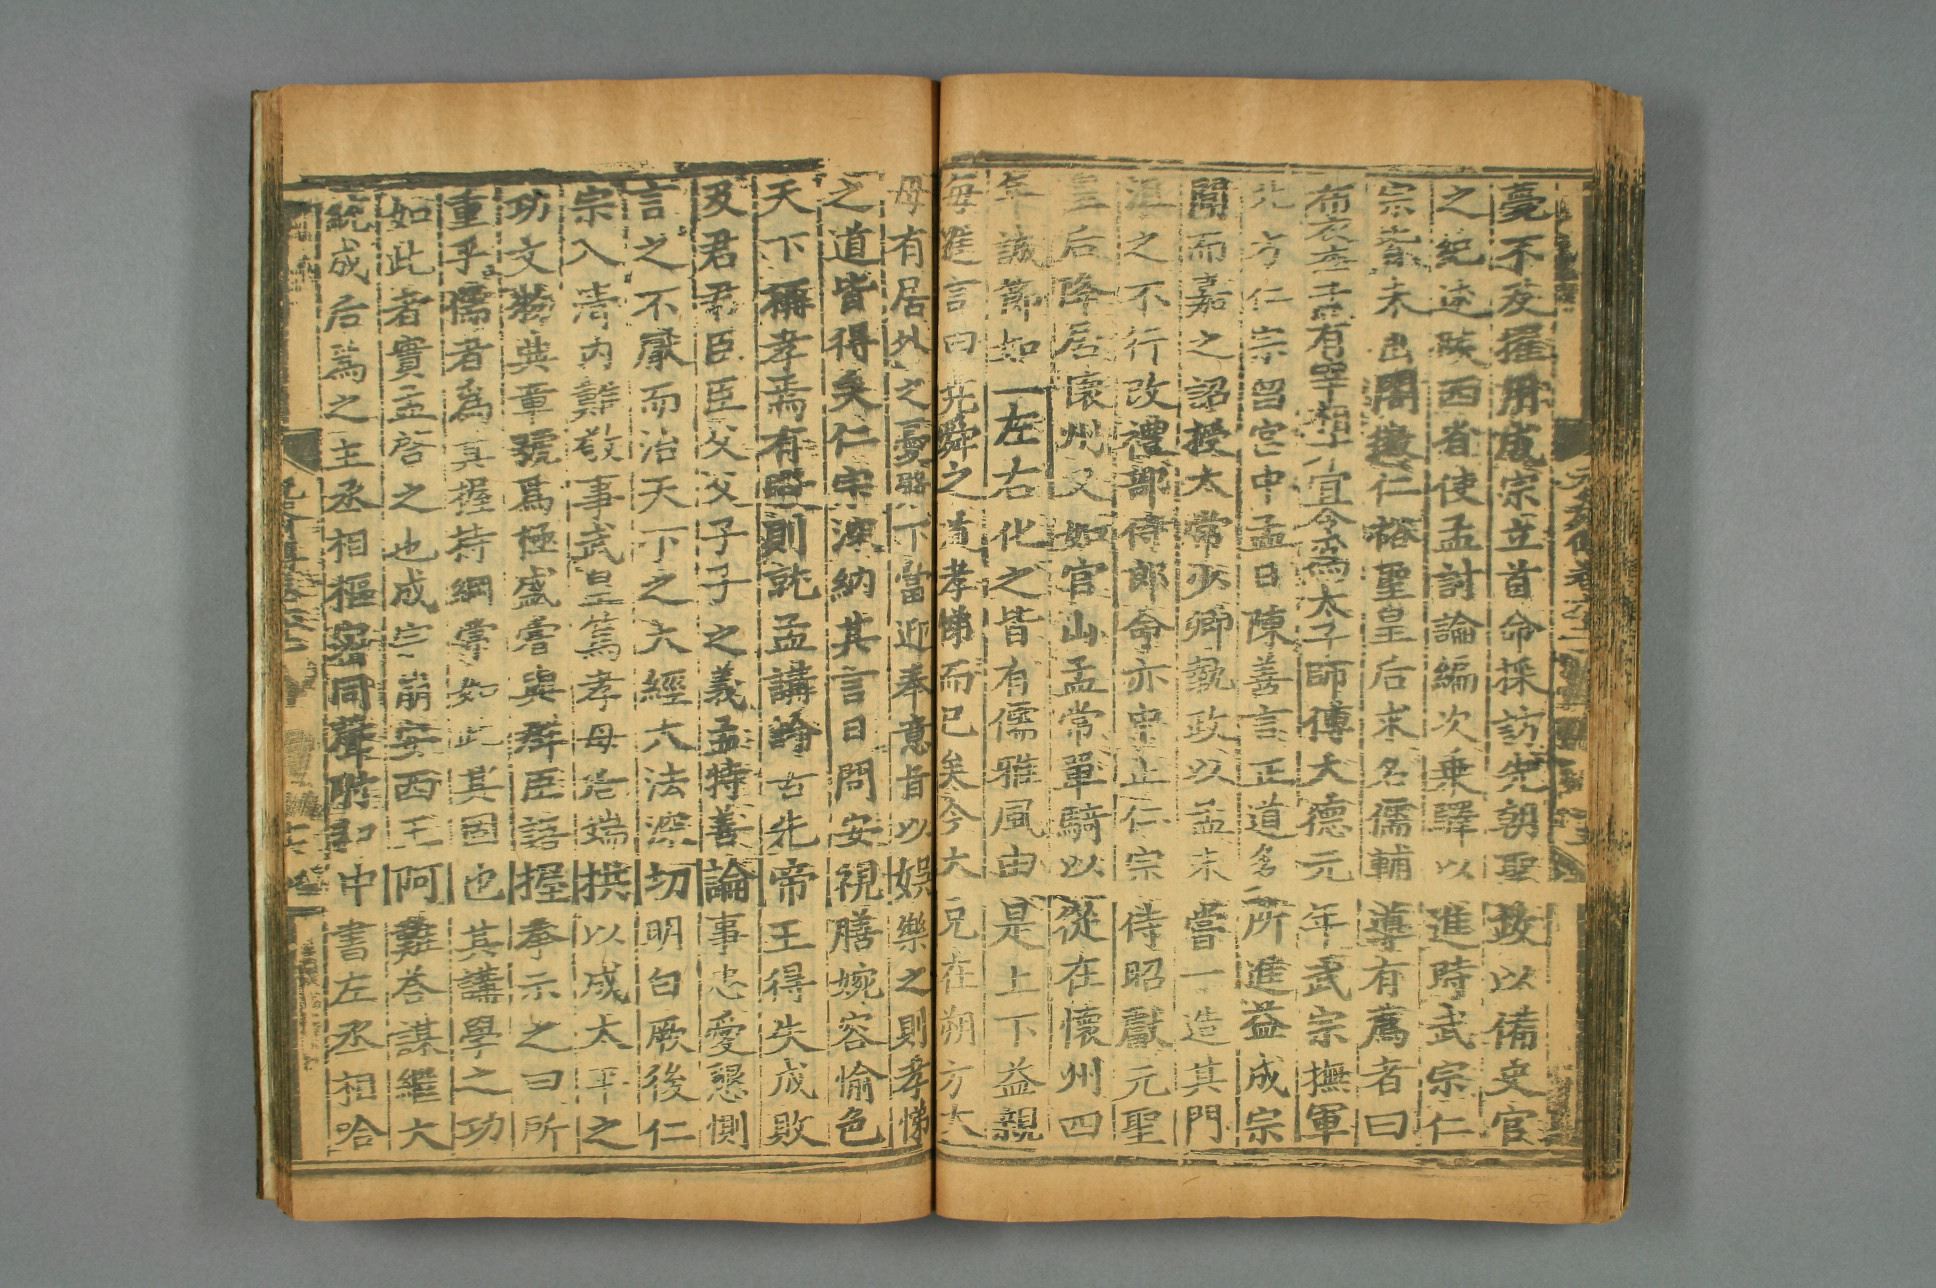 憂不及擢用成宗立首命採訪先朝聖政以備史官
之紀述陝西省使孟討論編次乗驛以進時武宗仁
宗未出閤徽仁裕聖皇后求名儒輔導有薦者曰
布衣李孟有宰相才宜令爲太子師傅大德元年武宗撫軍
北方仁宗留宮中孟日陳善言正道多所進益成宗
聞而嘉之詔授太常少卿執政以孟未嘗一造其門
沮之不行改禮部侍郎命亦中止仁宗侍昭獻元聖
皇后降居懷州又如官山孟常單騎以從在懷州四
年誠節如一左右化之皆有儒雅風由是上下益親
每進言曰堯舜之道孝悌而已矣今大兄在朔方大
母有居外之憂殿下當迎奉意旨以娯樂之則孝悌
之道皆得矣仁宗深納其言日問安視膳婉容愉色
天下稱孝焉有暇則就孟講論古先帝王得失成敗
及君君臣臣父父子子之義孟特善論事忠愛懇惻
言之不厭而治天下之大經大法深切明白厥後仁
宗入清内難敬事武皇篤孝母后端拱以成太平之
功文物典章號爲極盛嘗與群臣語握拳示之曰所
重乎儒者爲其握持綱常如此其固也其講學之功
如此者實孟啓之也成宗崩安西王阿難荅謀繼大
統成后爲之主丞相樞密同聲附和中書左丞相哈